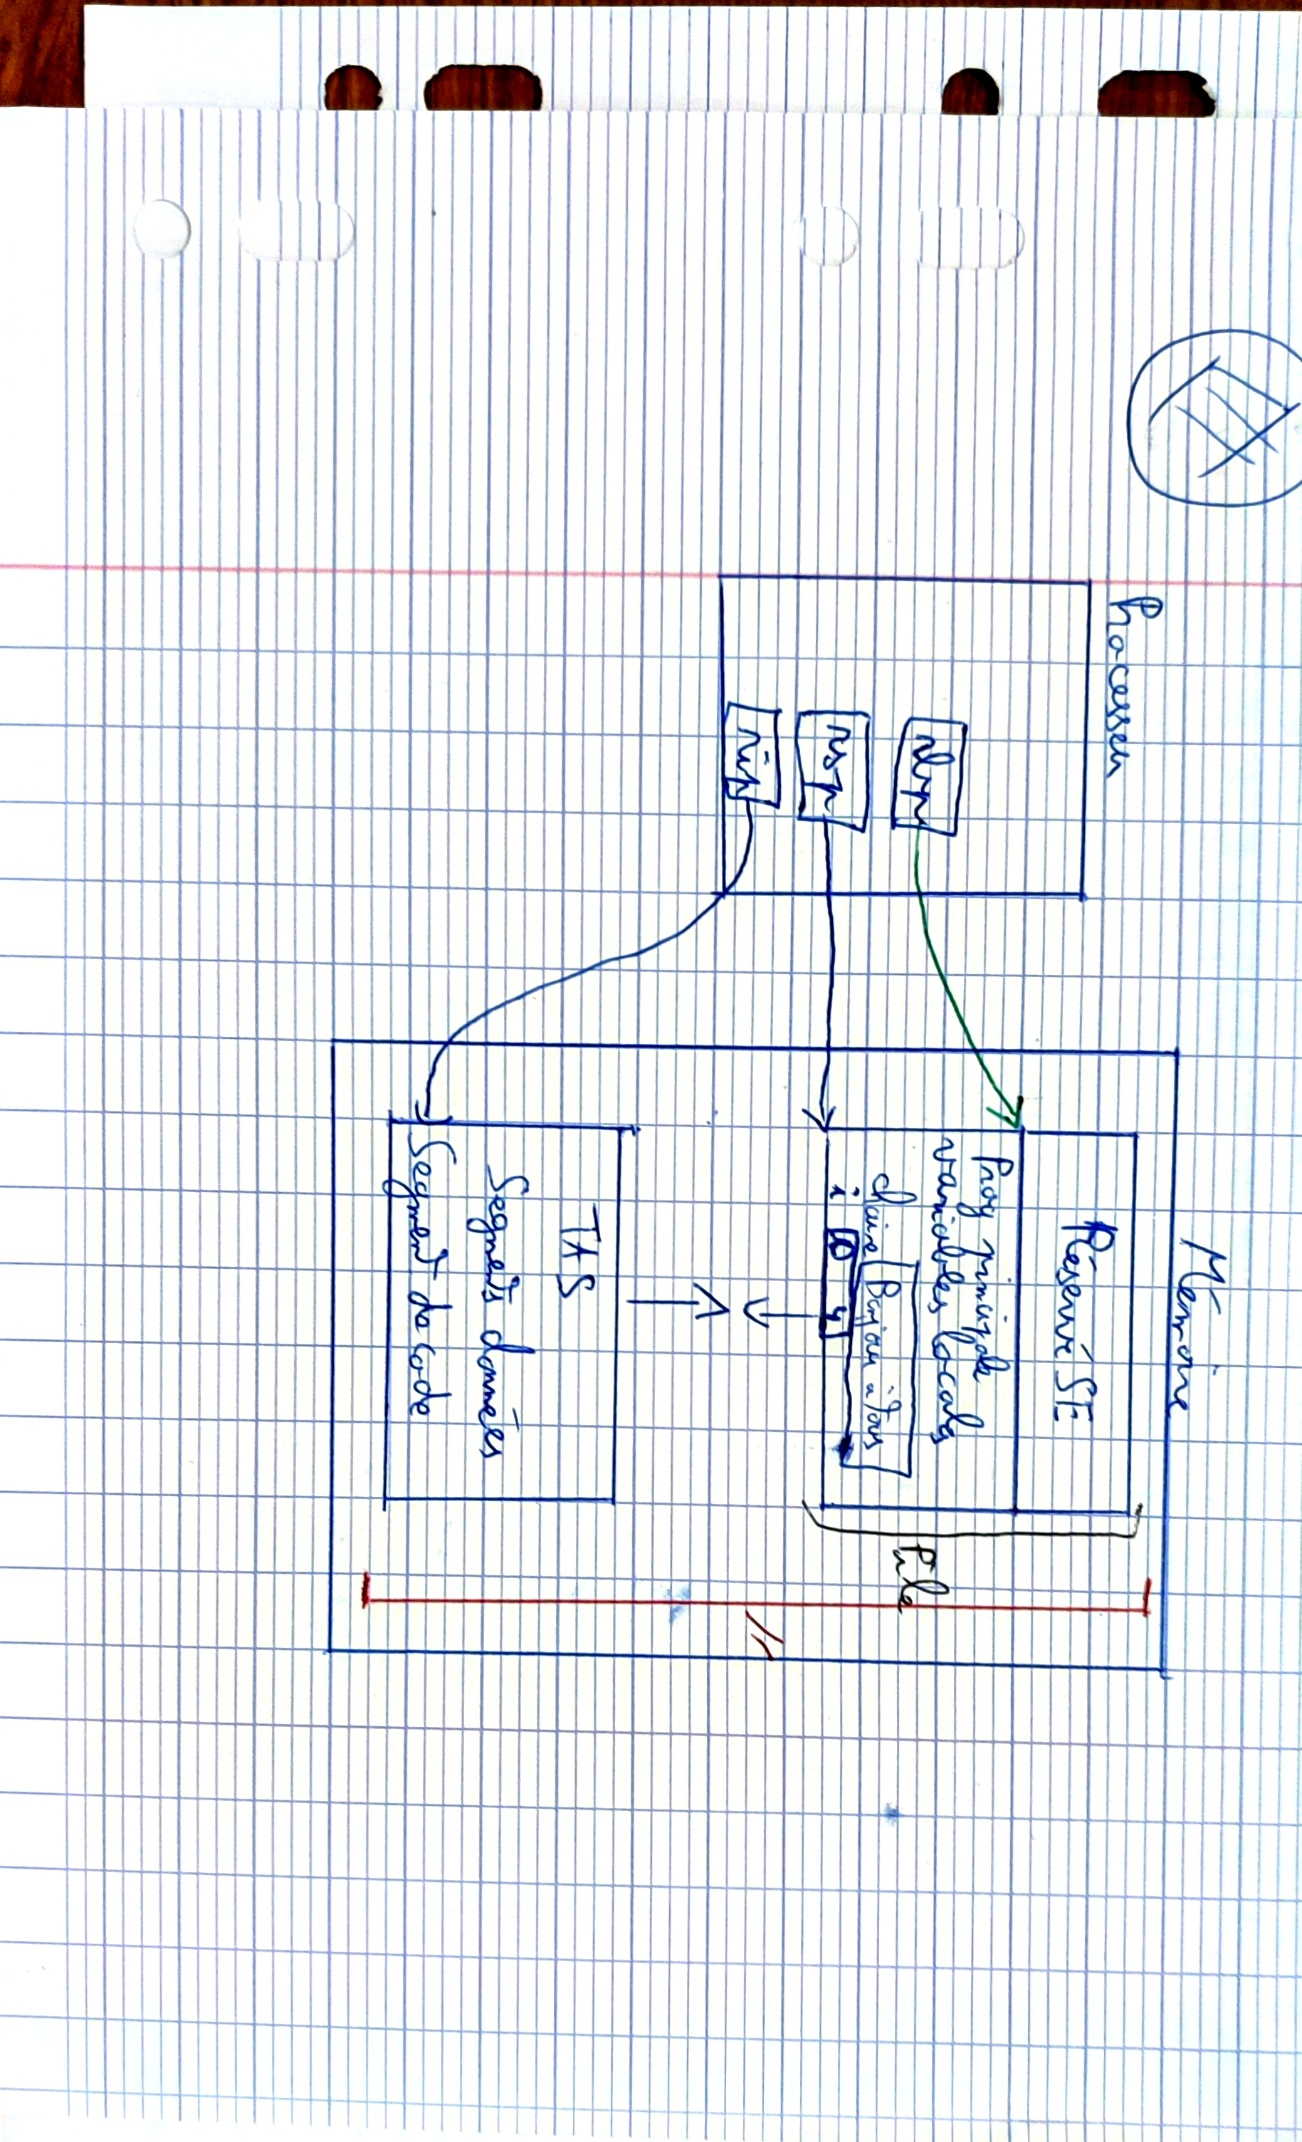 Processeu
rbp
rsp
rip
Mémoire
Réservé SE
Prog principale
variables locales
chaine Bonjour à tous
i 10 4
Pile
TAS
Segments données
Segment de code